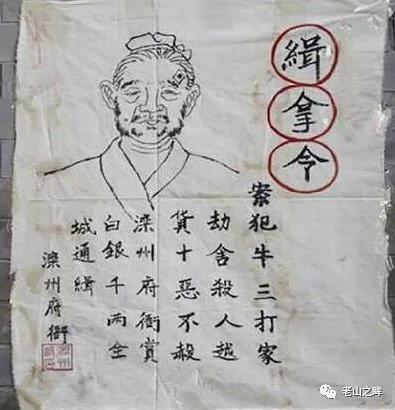 緝拿令
案犯牛三打家
劫舍殺人越
貨十惡不赦
滦州府衙賞
白銀千兩全
城通緝
滦州府衙
老山之眸